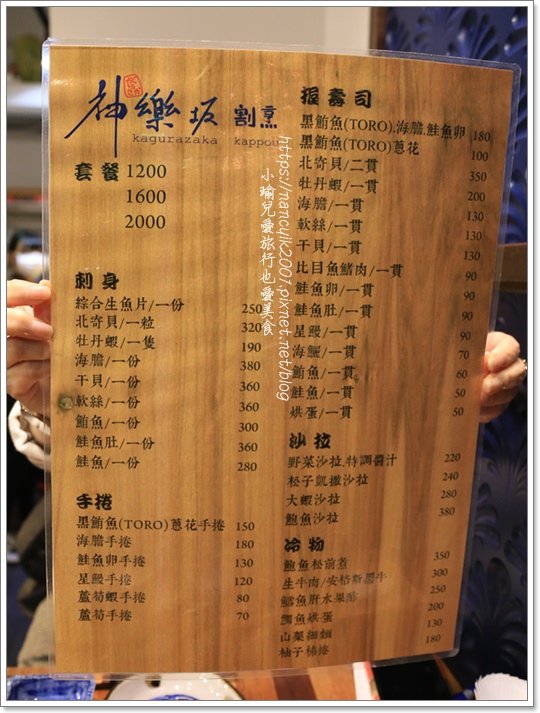 神樂坂 割烹
kagurazaka kappou
套餐 1200
1600
2000
刺身
綜合生魚片/一份 250
北寄貝/一粒 320
牡丹蝦/一隻 190
海膽/一份 380
干貝/一份 360
軟絲/一份 360
鮪魚/一份 300
鮭魚肚/一份 360
鮭魚/一份 280
手捲
黑鮪魚(TORO)蔥花手捲 150
海膽手捲 180
鮭魚卵手捲 130
星鰻手捲 120
蘆筍蝦手捲 80
蘆筍手捲 70
握壽司
黑鮪魚(TORO).海膽.鮭魚卵 180
黑鮪魚(TORO)蔥花 100
北寄貝/二貫 350
牡丹蝦/一貫 200
海膽/一貫 130
軟絲/一貫 130
干貝/一貫 130
比目魚鰭肉/一貫 90
鮭魚卵/一貫 90
鮭魚肚/一貫 90
星鰻/一貫 90
海鱺/一貫 70
鮪魚/一貫 60
鮭魚/一貫 50
烘蛋/一貫 50
沙拉
野菜沙拉.特調醬汁 220
松子凱撒沙拉 240
大蝦沙拉 280
鮑魚沙拉 380
冷物
鮑魚松前煮 350
生牛肉/安格斯黑牛 300
鱈魚肝水果醋 250
鯛魚烘蛋 200
山藥細麵 130
柚子柿捲 180
https://nancylk2001.pixnet.net/blog
小瑜兒愛旅行也愛美食